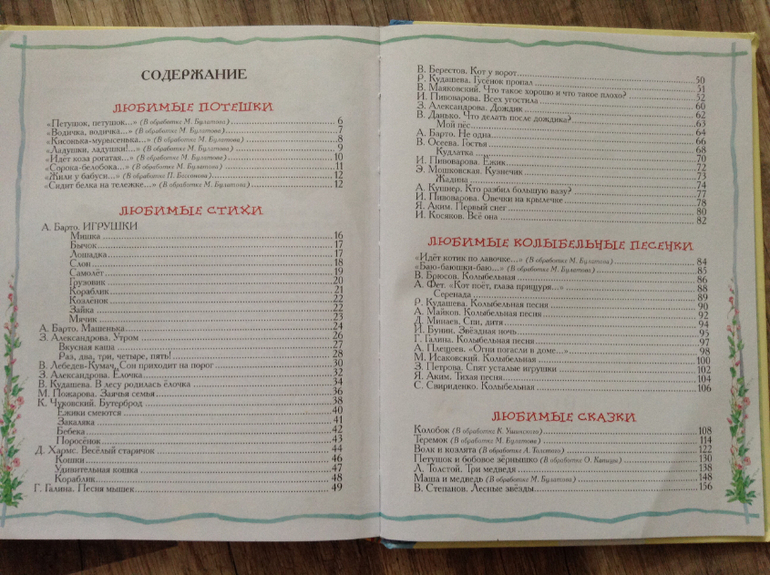 СОДЕРЖАНИЕ
ЛЮБИМЫЕ ПОТЕШКИ
«Петушок, петушок...» (В обработке М. Булатова) 6
«Водичка, водичка...» (В обработке М. Булатова) 7
«Кисонька-мурысенька...» (В обработке М. Булатова) 8
«Ладушки, ладушки!...» (В обработке М. Булатова) 9
«Идёт коза рогатая...» (В обработке М. Булатова) 10
«Сорока-белобока...» (В обработке М. Булатова) 11
«Жили у бабуси...» (В обработке П. Бессонова) 12
«Сидит белка на тележке...» (В обработке М. Булатова) 12
ЛЮБИМЫЕ СТИХИ
А. Барто. ИГРУШКИ
Мишка 16
Бычок 17
Лошадка 17
Слон 18
Самолёт 19
Грузовик 20
Кораблик 21
Козлёнок 22
Зайка 22
Мячик 23
А. Барто. Машенька 24
З. Александрова. Утром 26
Вкусная каша 27
Раз, два, три, четыре, пять! 28
В. Лебедев-Кумач. Сон приходит на порог 30
З. Александрова. Ёлочка 32
В. Кудашева. В лесу родилась ёлочка 34
М. Пожарова. Заячья семья 36
К. Чуковский. Бутерброд 38
Ёжики смеются 40
Закаляка 41
Бебека 42
Поросёнок 43
Д. Хармс. Весёлый старичок 44
Кошки 46
Удивительная кошка 47
Кораблик 48
Г. Галина. Песня мышек 49
В. Берестов. Кот у ворот 50
Р. Кудашева. Гусёнок пропал 51
В. Маяковский. Что такое хорошо и что такое плохо? 52
И. Пивоварова. Всех угостила 60
З. Александрова. Дождик 62
В. Данько. Что делать после дождика? 63
Мой пёс 64
А. Барто. Не одна 66
В. Осеева. Гостья 68
Кудлатка 70
И. Пивоварова. Ёжик 72
Э. Мошковская. Кузнечик 73
Жадина 74
А. Кушнер. Кто разбил большую вазу? 77
И. Пивоварова. Овечки на крылечке 78
Я. Аким. Первый снег 80
И. Косяков. Всё она 82
ЛЮБИМЫЕ КОЛЫБЕЛЬНЫЕ ПЕСЕНКИ
«Идёт котик по лавочке...» (В обработке М. Булатова) 84
«Баю-баюшки-баю...» (В обработке М. Булатова) 85
В. Брюсов. Колыбельная 86
А. Фет. «Кот поёт, глаза прищуря...» 88
Серенада 89
Р. Кудашева. Колыбельная песня 90
А. Майков. Колыбельная песня 92
Д. Минаев. Спи, дитя 94
И. Бунин. Звёздная ночь 95
Г. Галина. Колыбельная песня 97
А. Плещеев. «Огни погасли в доме...» 98
М. Исаковский. Колыбельная 100
З. Петрова. Спят усталые игрушки 102
Я. Аким. Тихая песня 104
С. Свириденко. Колыбельная 106
ЛЮБИМЫЕ СКАЗКИ
Колобок (В обработке К. Ушинского) 108
Теремок (В обработке М. Булатова) 114
Волк и козлята (В обработке А. Толстого) 122
Петушок и бобовое зёрнышко (В обработке О. Капицы) 130
Л. Толстой. Три медведя 138
Маша и медведь (В обработке М. Булатова) 148
В. Степанов. Лесные звёзды 156